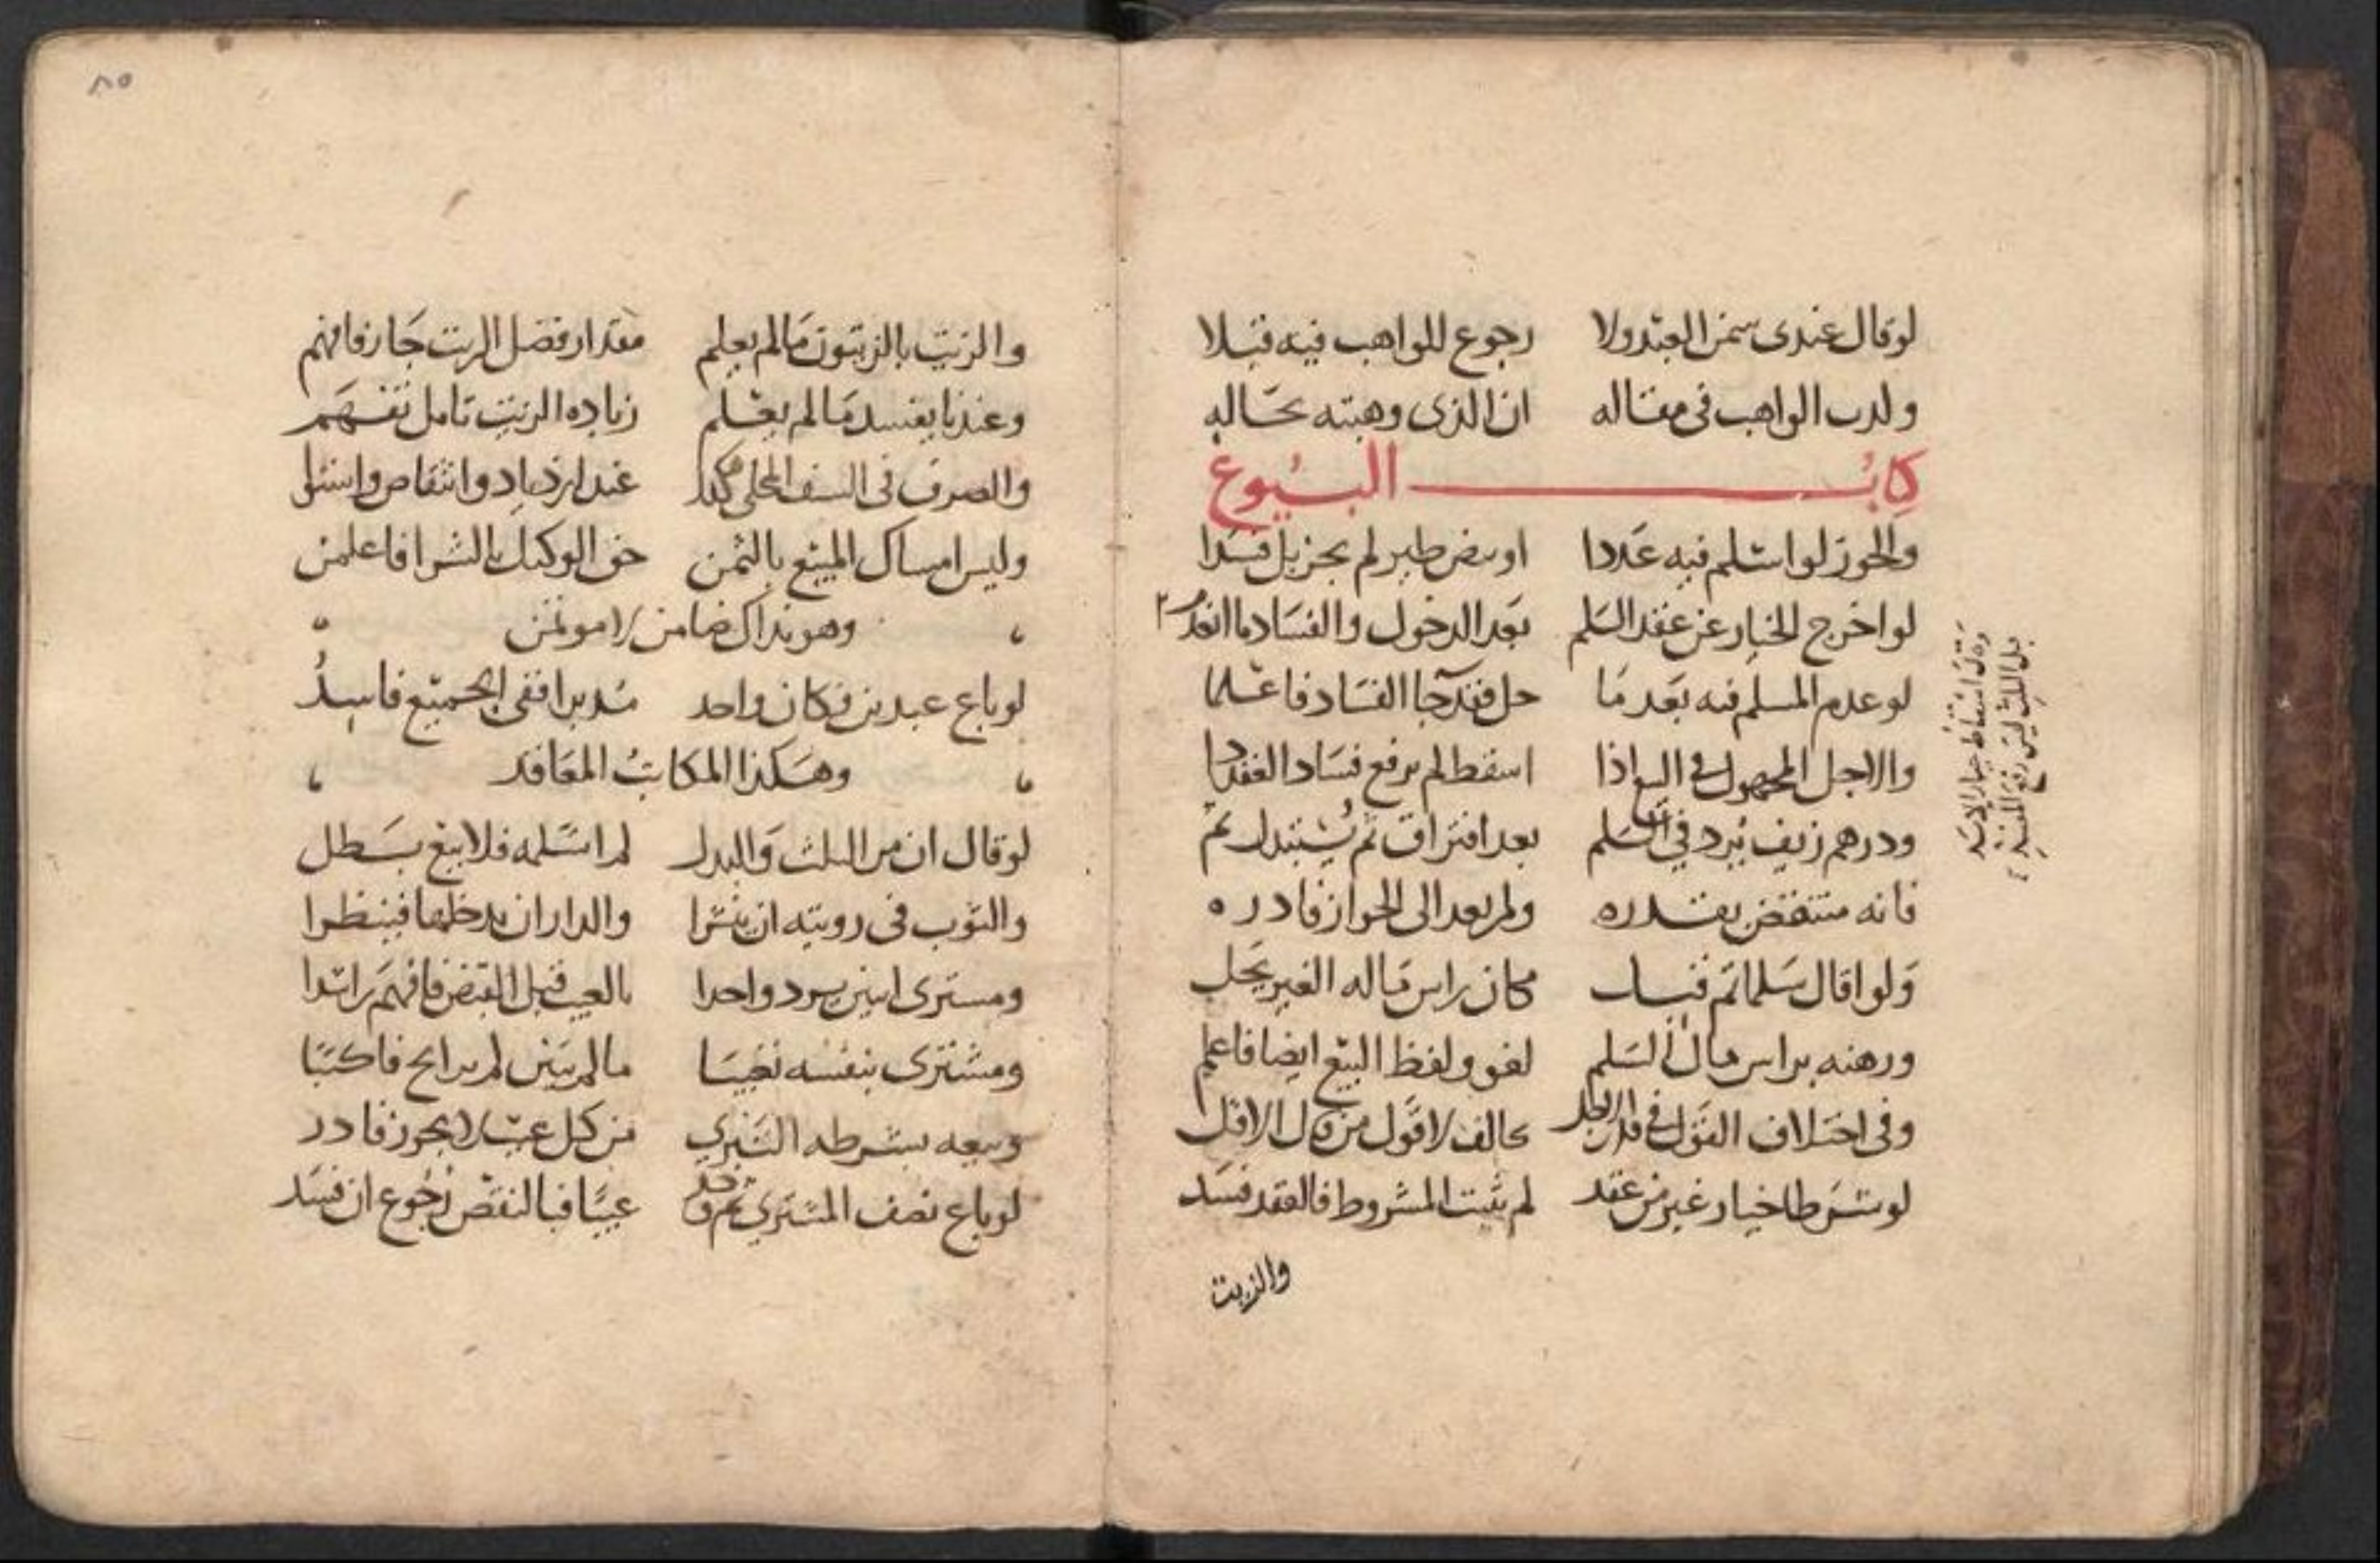 لو قال عندي سمن العبد ولا رجوع للواهب فيه قبلا
الواهب في مقاله ان الذي وهبته بحاله
كتاب البيوع
والجوز لو اسلم فيه عددا او بيض طير لم يجز بل فسدا
لو اخرج الخيار عن عقد السلم بعد الدخول والفساد ما انعدم
لو عدم المسلم فيه بعد ما حل فقد جا الفساد فاعلما
والاجل المجهول في البيع اذا اسقط لم يرفع فساد العقد ذا
ودرهم زيف يرد في السلم بعد افتراق ثم يستبدل ثم
فانه منتقض بقدره ولم يعد الى الجواز فادره
ولو اقال سلما ثم قبل مكان راس ماله الغير يحل
ورهنه براس مال السلم لغو ولفظ البيع ايضا فاعلم
وفي اختلاف القول في قدر الاجل تحالف لا قول من قال الاقل
لو شرطا خيار غير من عقد لم يثبت المشروط فالعقد فسد
والزيت
٨٥
والزيت بالزيتون ما لم يعلم مقدار فضل الزيت جاز فافهم
وعندنا يفسد ما لم يعلم زيادة الزيت تامل تفهم
والصرف في السيف المحلى عند ازدياد وانتقاص
وليس امساك المبيع بالثمن حق الوكيل بالشرا فاعلمن
وهو بذاك ضامن لا موتمن
لو باع عبدين فكان واحد مدبرا ففي الجميع فاسد
وهكذا المكاتب المعاقد
لو قال ان من الثلث والبدل لم اسلمه فلا بيع بطل
والثوب في رويته ان ينشرا والدار ان يدخلها فينظرا
ومشتري اثنين يرد واحدا بالعيب قبل القبض فافهم راشدا
ومشتري بنفسه نفيسا ما لم يبين لم يرابح فاكتبا
وبيعه بشرطه التبري من كل عيب لا يجوز فادر
لو باع نصف المشتري ثم وجد عيبا فبالنقص رجوع ان فسد